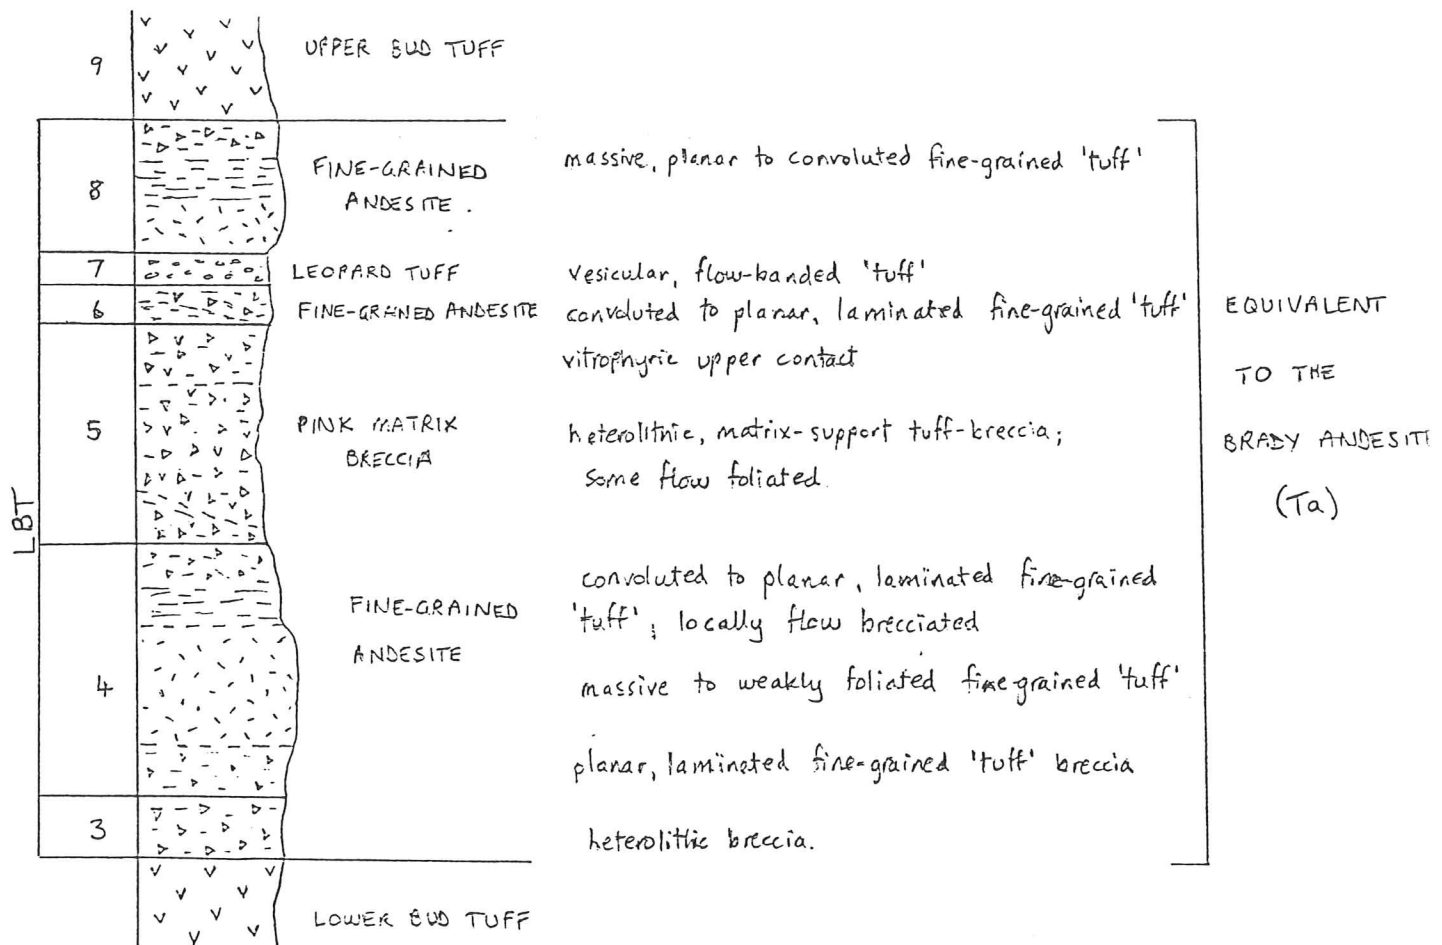 9
UPPER BUD TUFF
8
FINE-GRAINED
ANDESITE.
massive, planar to convoluted fine-grained 'tuff'
7
LEOPARD TUFF
vesicular, flow-banded 'tuff'
6
FINE-GRAINED ANDESITE
convoluted to planar, laminated fine-grained 'tuff'
vitrophyric upper contact
5
PINK MATRIX
BRECCIA
heterolithic, matrix-support tuff-breccia;
some flow foliated.
LBT
4
FINE-GRAINED
ANDESITE
convoluted to planar, laminated fine-grained
'tuff'; locally flow brecciated
massive to weakly foliated fine-grained 'tuff'
planar, laminated fine-grained 'tuff' breccia
3
heterolithic breccia.
LOWER BUD TUFF
EQUIVALENT
TO THE
BRADY ANDESITE
(Ta)